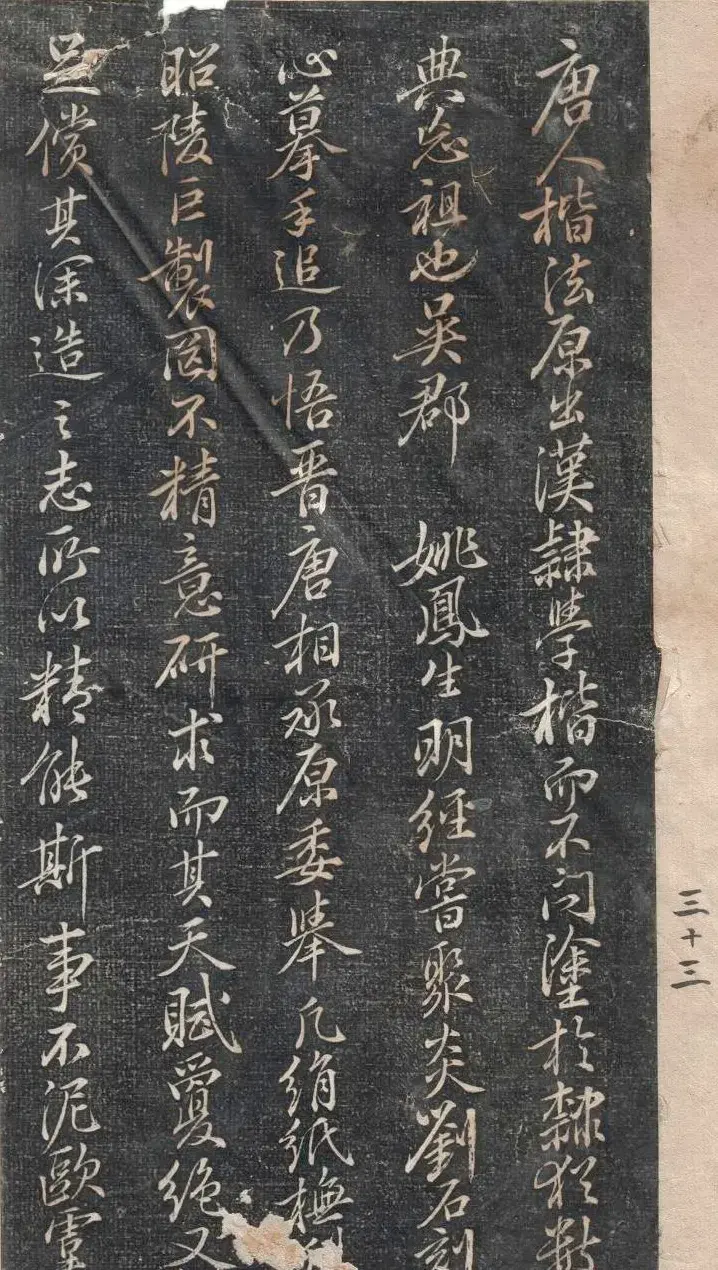 唐人楷法原出漢隸學楷而不問塗於隸猶數
典忘祖也吳郡　姚鳳生明經嘗聚炎劉石刻
心摹手追乃悟晉唐相承原委舉凡絹紙橅刻
昭陵巨製罔不精意研求而其天賦敻絕又
足償其深造之志所以精能斯事不泥歐虞
三十三